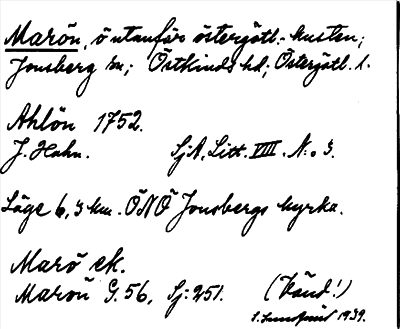 Marön, ö utanför östergötl.-kusten;
Jonsberg sn; Östkinds hd; Östergötl. l.
Ahlön 1752.
J. Hahn. SjA, Litt. VIII. N:o 3.
Läge 6,3 km. ÖNÖ Jonsbergs kyrka.
Marö ek.
Marön G. 56, Sj: 251. (Vänd!)
1939.